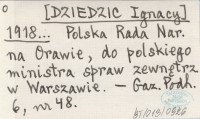 o
[DZIEDZIC Ignacy]
1918... Polska Rada Nar.
na Orawie, do polskiego
ministra spraw zewnętrz
w Warszawie. — Gaz. Podh.
6, nr 48.